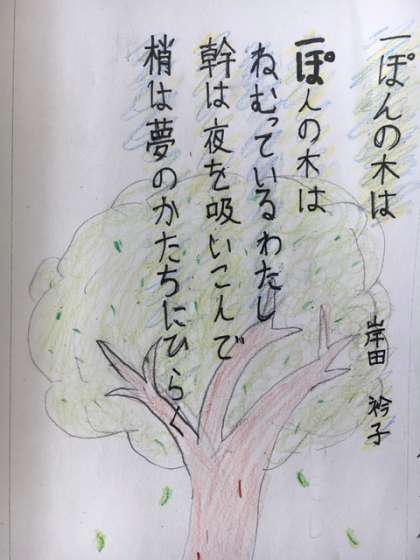 一ぽんの木は
岸田 衿子
一ぽんの木は
ねむっているわたし
幹は夜を吸いこんで
梢は夢のかたちにひらく